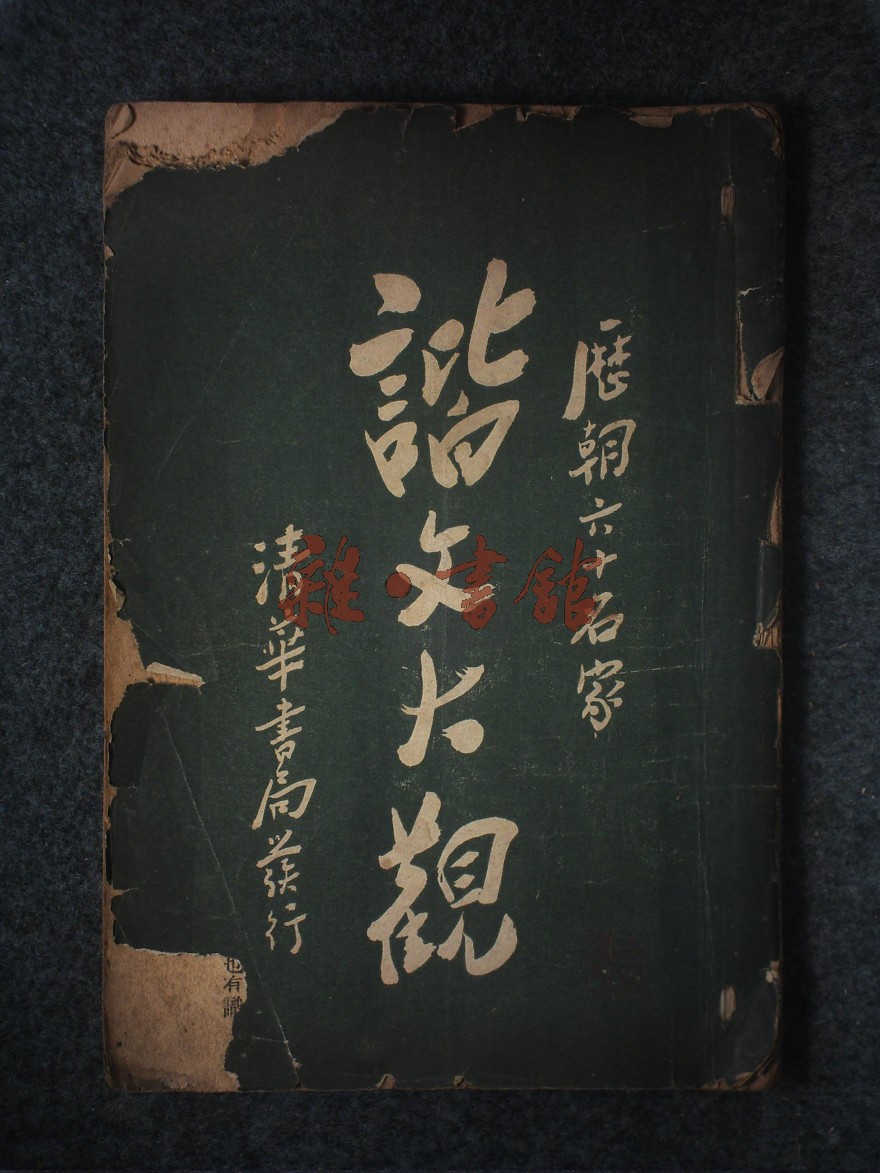 歷朝六十名家
諧文大觀
清華書局發行
也有識
雜·書館